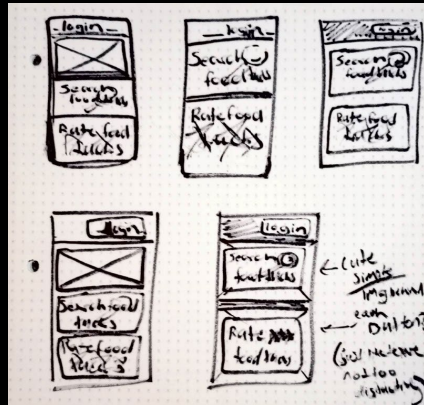 login
Search
food trucks
Rate food
trucks
login
Search
food trucks
Rate food
trucks
login
Search
food trucks
Rate food
trucks
login
Search food
trucks
Rate food
trucks
login
Search
food trucks
Rate
food trucks
← cute
simple
each
button
(just
not too
distracting)